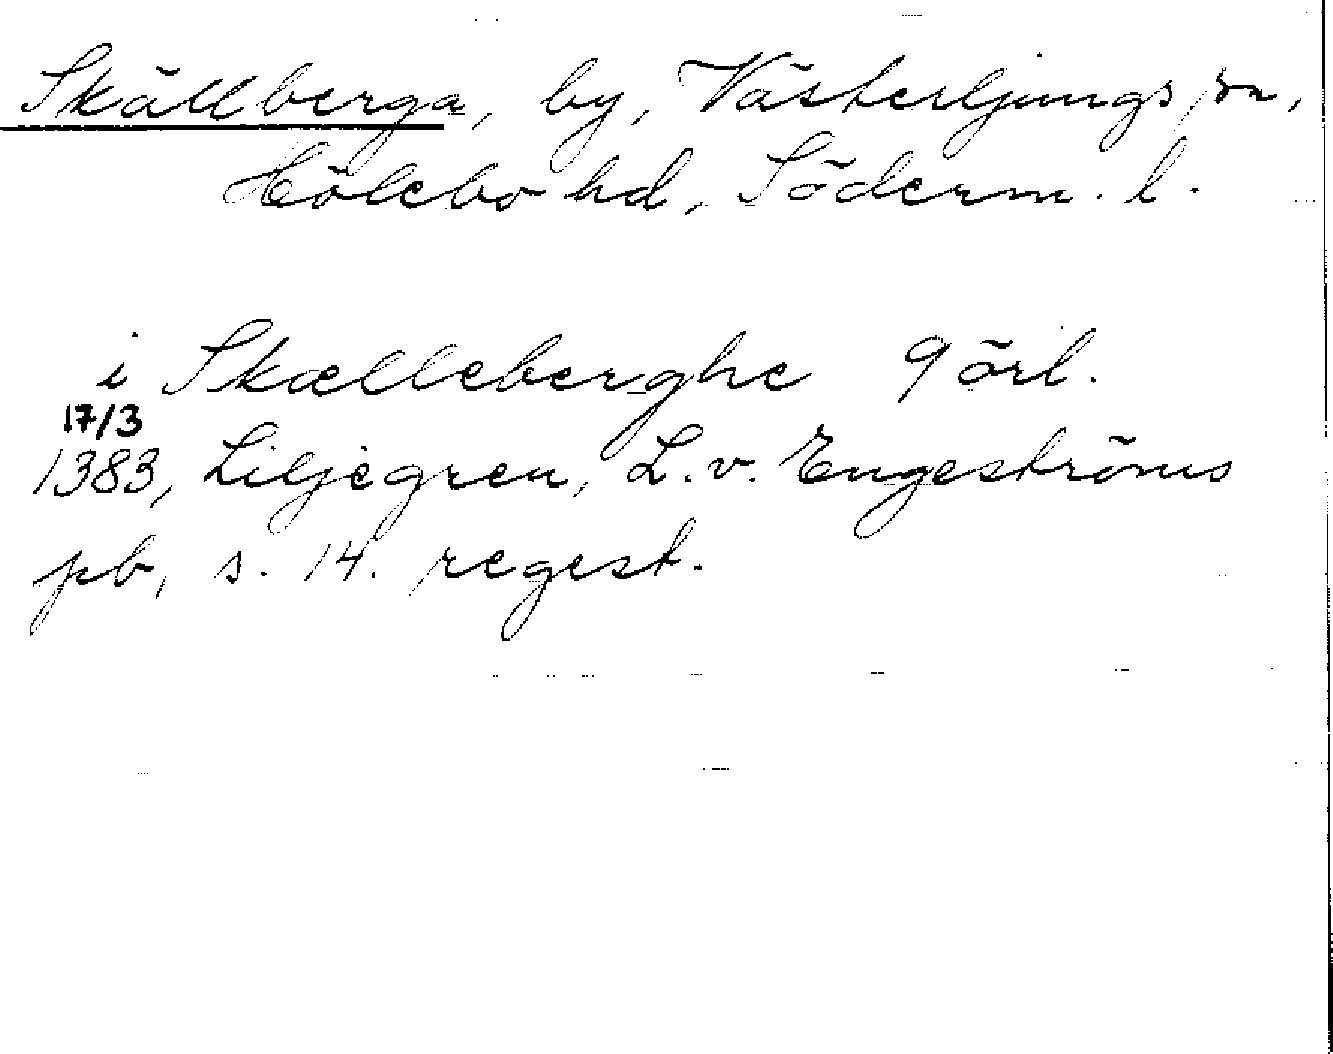 Skällberga, by, Västerljungs sn,
Hölebo hd, Söderm. l.
i Skælleberghe 9 örl.
17/3
1383, Liljegren, L. v. Engeströms
pb, s. 14. regest.